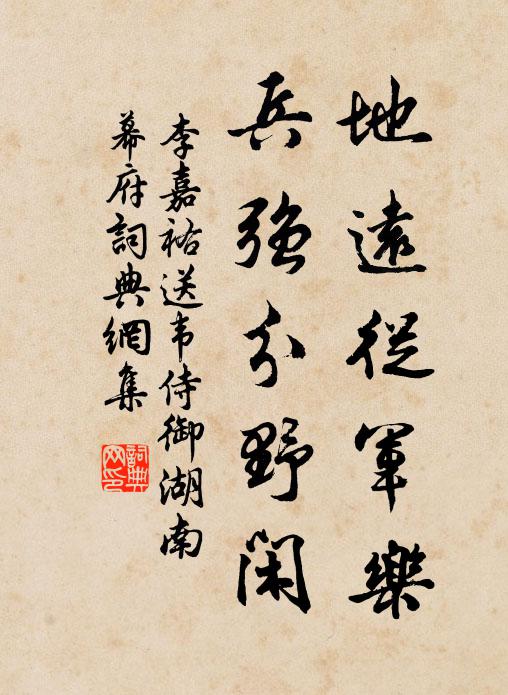 地遠從軍樂
兵強分野閑
李嘉祐送韦侍御湖南
幕府詞典網集
詞典
网印